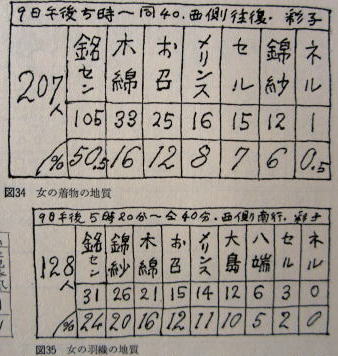 9日午後5時〜同40.西側往復.彩子
207人
銘セン 木綿 お召 メリンス セル 錦紗 ネル
105 33 25 16 15 12 1
% 50.5 16 12 8 7 6 0.5
図34 女の着物の地質
9日午後5時20分〜仝40分.西側南行.彩子
128人
銘セン 錦紗 木綿 お召 メリンス 大島 八端 セル ネル
31 26 21 15 14 12 6 3 0
% 24 20 16 12 11 10 5 2 0
図35 女の羽織の地質